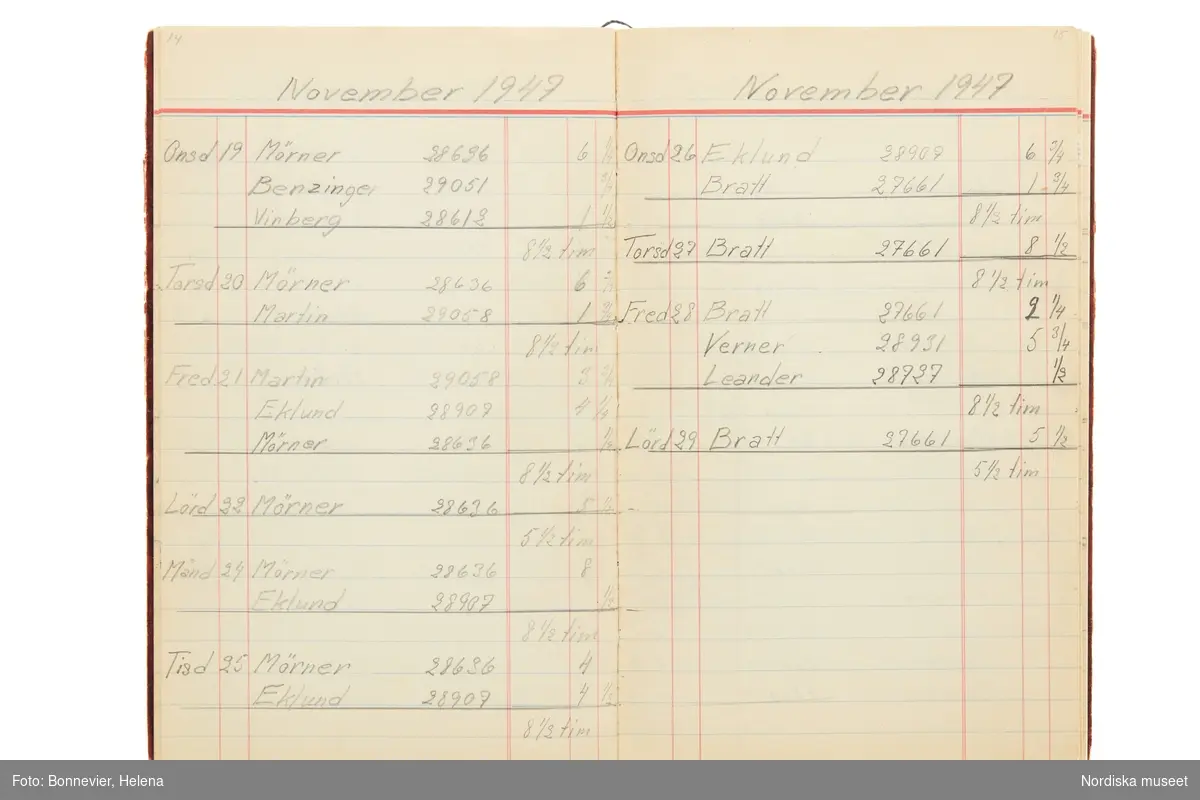 14
November 1947
Onsd 19 Mörner 28636 6 1/4
Benzinger 29051 3/4
Vinberg 28612 1 1/2
8 1/2 tim
Torsd 20 Mörner 28636 6
Martin 29058 1
8 1/2 tim
Fred 21 Martin 29058 3 3/4
Eklund 28907 4 1/4
Mörner 28636 1/2
8 1/2 tim
Lörd 22 Mörner 28636 5 1/2
5 1/2 tim
Månd 24 Mörner 28636 8
Eklund 28907 1/2
8 1/2 tim
Tisd 25 Mörner 28636 4
Eklund 28907 4 1/2
8 1/2 tim
15
November 1947
Onsd 26 Eklund 28907 6 3/4
Bratt 27661 1 3/4
8 1/2 tim
Torsd 27 Bratt 27661 8 1/2
8 1/2 tim
Fred 28 Bratt 27661 2 1/4
Verner 28931 5 3/4
Leander 28727 1/2
8 1/2 tim
Lörd 29 Bratt 27661 5 1/2
5 1/2 tim
Foto: Bonnevier, Helena
Nordiska museet